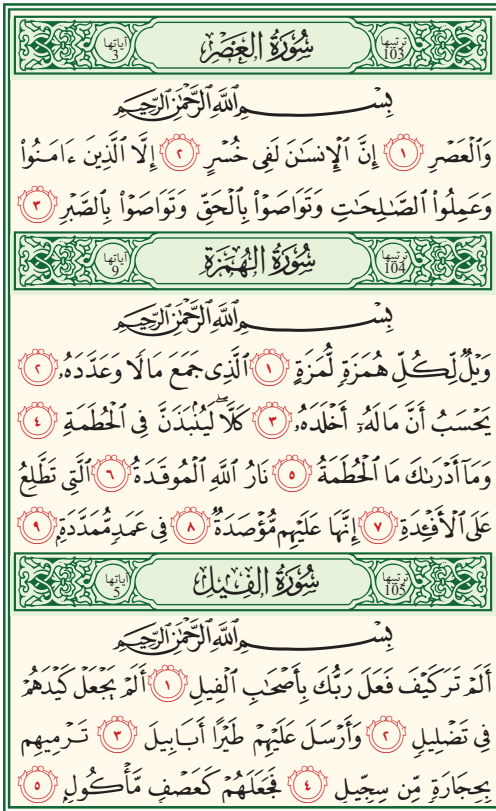 ترتيبها 103 سُورَةُ الْعَصْرِ آياتها 3
بِسْمِ ٱللَّهِ ٱلرَّحْمَٰنِ ٱلرَّحِيمِ
وَٱلْعَصْرِ ١ إِنَّ ٱلْإِنسَٰنَ لَفِى خُسْرٍ ٢ إِلَّا ٱلَّذِينَ ءَامَنُوا۟
وَعَمِلُوا۟ ٱلصَّٰلِحَٰتِ وَتَوَاصَوْا۟ بِٱلْحَقِّ وَتَوَاصَوْا۟ بِٱلصَّبْرِ ٣
ترتيبها 104 سُورَةُ الْهُمَزَةِ آياتها 9
بِسْمِ ٱللَّهِ ٱلرَّحْمَٰنِ ٱلرَّحِيمِ
وَيْلٌ لِّكُلِّ هُمَزَةٍ لُّمَزَةٍ ١ ٱلَّذِى جَمَعَ مَالًا وَعَدَّدَهُۥ ٢
يَحْسَبُ أَنَّ مَالَهُۥٓ أَخْلَدَهُۥ ٣ كَلَّا ۖ لَيُنۢبَذَنَّ فِى ٱلْحُطَمَةِ ٤
وَمَآ أَدْرَىٰكَ مَا ٱلْحُطَمَةُ ٥ نَارُ ٱللَّهِ ٱلْمُوقَدَةُ ٦ ٱلَّتِى تَطَّلِعُ
عَلَى ٱلْأَفْـِٔدَةِ ٧ إِنَّهَا عَلَيْهِم مُّؤْصَدَةٌ ٨ فِى عَمَدٍ مُّمَدَّدَةٍۭ ٩
ترتيبها 105 سُورَةُ الْفِيلِ آياتها 5
بِسْمِ ٱللَّهِ ٱلرَّحْمَٰنِ ٱلرَّحِيمِ
أَلَمْ تَرَ كَيْفَ فَعَلَ رَبُّكَ بِأَصْحَٰبِ ٱلْفِيلِ ١ أَلَمْ يَجْعَلْ كَيْدَهُمْ
فِى تَضْلِيلٍ ٢ وَأَرْسَلَ عَلَيْهِمْ طَيْرًا أَبَابِيلَ ٣ تَرْمِيهِم
بِحِجَارَةٍ مِّن سِجِّيلٍ ٤ فَجَعَلَهُمْ كَعَصْفٍ مَّأْكُولٍۭ ٥